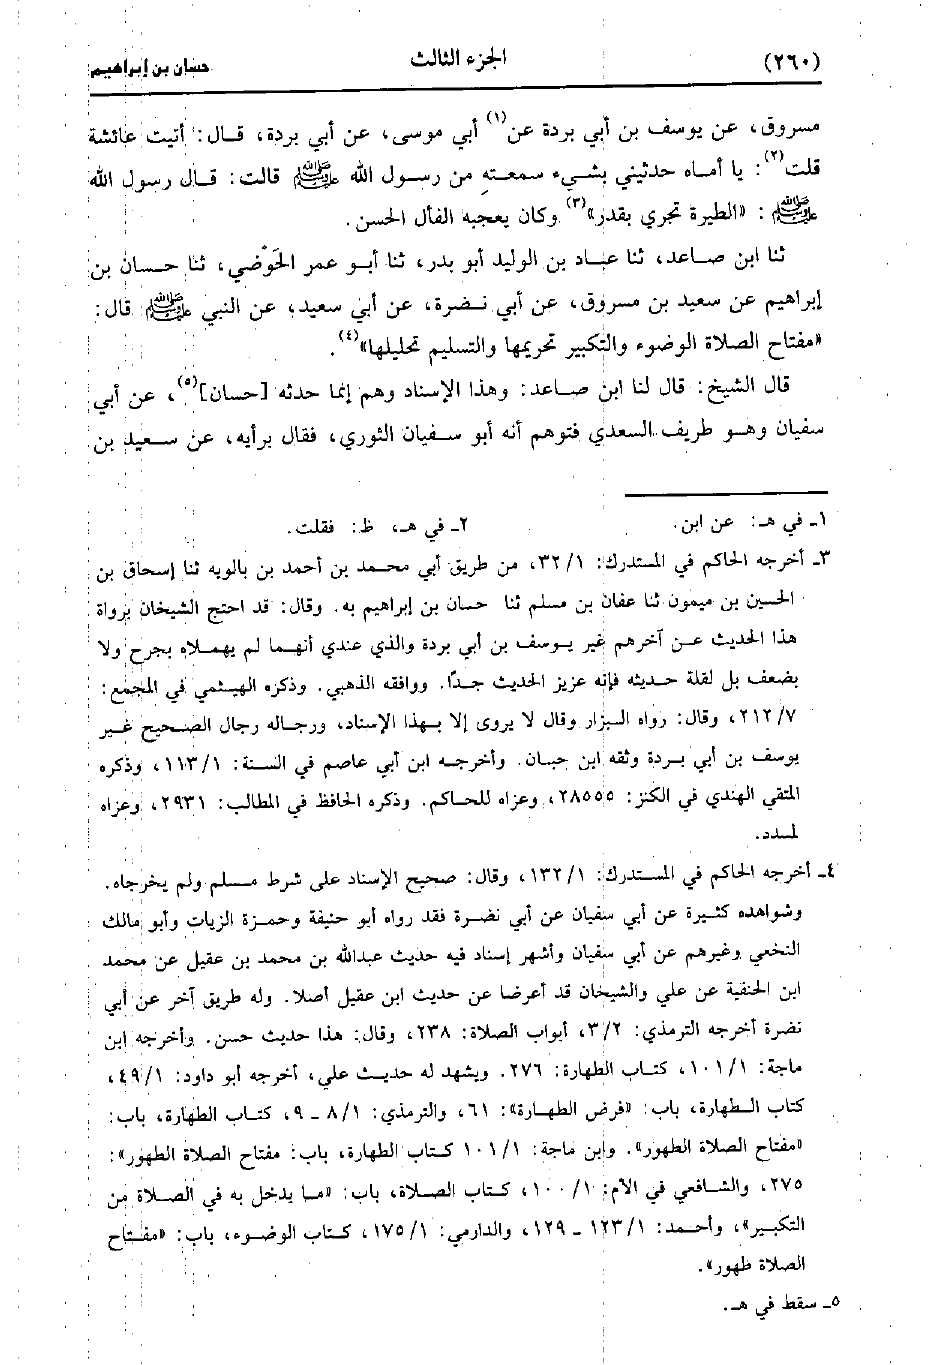 (٢٦٠) الجزء الثالث حسان بن إبراهيم
مسروق، عن يوسف بن أبي بردة عن(١) أبي موسى، عن أبي بردة، قال: أتيت عائشة
قلت(٢): يا أماه حدثيني بشيء سمعته من رسول الله ﷺ قالت: قال رسول الله
ﷺ: «الطيرة تجري بقدر»(٣) وكان يعجبه الفأل الحسن.
ثنا ابن صاعد، ثنا عباد بن الوليد أبو بدر، ثنا أبو عمر الحَوْضي، ثنا حسان بن
إبراهيم عن سعيد بن مسروق، عن أبي نضرة، عن أبي سعيد، عن النبي ﷺ قال:
«مفتاح الصلاة الوضوء والتكبير تحريمها والتسليم تحليلها»(٤).
قال الشيخ: قال لنا ابن صاعد: وهذا الإسناد وهم إنما حدثه [حسان](٥)، عن أبي
سفيان وهو طريف السعدي فتوهم أنه أبو سفيان الثوري، فقال برأيه، عن سعيد بن
١ـ في هـ: عن ابن. ٢ـ في هـ، ظ: فقلت.
٣ـ أخرجه الحاكم في المستدرك: ٣٢/١، من طريق أبي محمد بن أحمد بن بالويه ثنا إسحاق بن
الحسين بن ميمون ثنا عفان بن مسلم ثنا حسان بن إبراهيم به. وقال: قد احتج الشيخان برواة
هذا الحديث عن آخرهم غير يوسف بن أبي بردة والذي عندي أنهما لم يهملاه بجرح ولا
بضعف بل لقلة حديثه فإنه عزيز الحديث جدًا. ووافقه الذهبي. وذكره الهيثمي في المجمع:
٢١٢/٧، وقال: رواه البزار وقال لا يروى إلا بهذا الإسناد، ورجاله رجال الصحيح غير
يوسف بن أبي بردة وثقه ابن حبان. وأخرجه ابن أبي عاصم في السنة: ١١٣/١، وذكره
المتقي الهندي في الكنز: ٢٨٥٥٥، وعزاه للحاكم. وذكره الحافظ في المطالب: ٢٩٣١، وعزاه
لمسدد.
٤ـ أخرجه الحاكم في المستدرك: ١٣٢/١، وقال: صحيح الإسناد على شرط مسلم ولم يخرجاه.
وشواهده كثيرة عن أبي سفيان عن أبي نضرة فقد رواه أبو حنيفة وحمزة الزيات وأبو مالك
النخعي وغيرهم عن أبي سفيان وأشهر إسناد فيه حديث عبدالله بن محمد بن عقيل عن محمد
ابن الحنفية عن علي والشيخان قد أعرضا عن حديث ابن عقيل أصلا. وله طريق آخر عن أبي
نضرة أخرجه الترمذي: ٣/٢، أبواب الصلاة: ٢٣٨، وقال: هذا حديث حسن. وأخرجه ابن
ماجة: ١٠١/١، كتاب الطهارة: ٢٧٦. ويشهد له حديث علي، أخرجه أبو داود: ٤٩/١،
كتاب الطهارة، باب: «فرض الطهارة»: ٦١، والترمذي: ٨/١ ـ ٩، كتاب الطهارة، باب:
«مفتاح الصلاة الطهور». وابن ماجة: ١٠١/١ كتاب الطهارة، باب: مفتاح الصلاة الطهور»:
٢٧٥، والشافعي في الأم: ١٠٠/١، كتاب الصلاة، باب: «ما يدخل به في الصلاة من
التكبير»، وأحمد: ١٢٣/١ ـ ١٢٩، والدارمي: ١٧٥/١، كتاب الوضوء، باب: «مفتاح
الصلاة طهور».
٥ـ سقط في هـ.